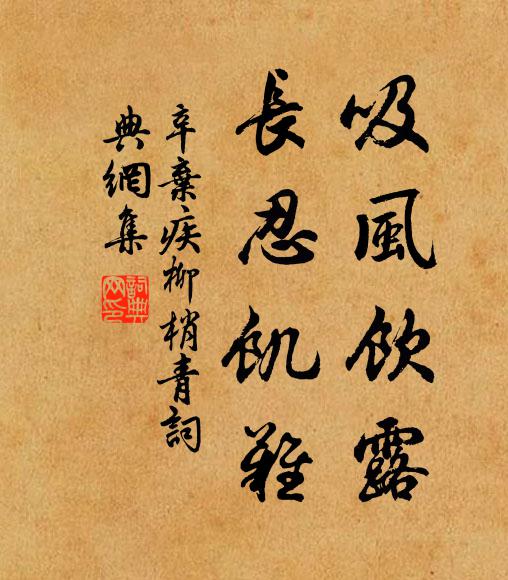 吸風飲露
長忍飢難
辛棄疾柳梢青詞
典網集
詞典
网印